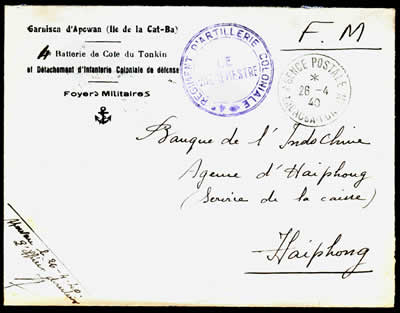 Garnison d'Apowan (Ile de la Cat-Ba)
4e Batterie de Cote du Tonkin
et Détachement d'Infanterie Coloniale de défense
Foyers Militaires
F. M
REGIMENT D'ARTILLERIE COLONIALE
LE
4
AGENCE POSTALE
26-4
40
Banque de l'IndoChine
Agence d'Haiphong
(Service de la caisse)
Haiphong
le 26-4-40